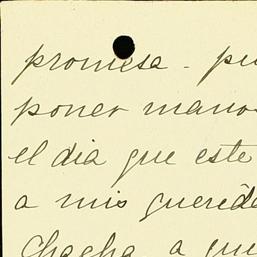 promesa - pu
poner mano
el dia que este
a mis queride
Chacha a que